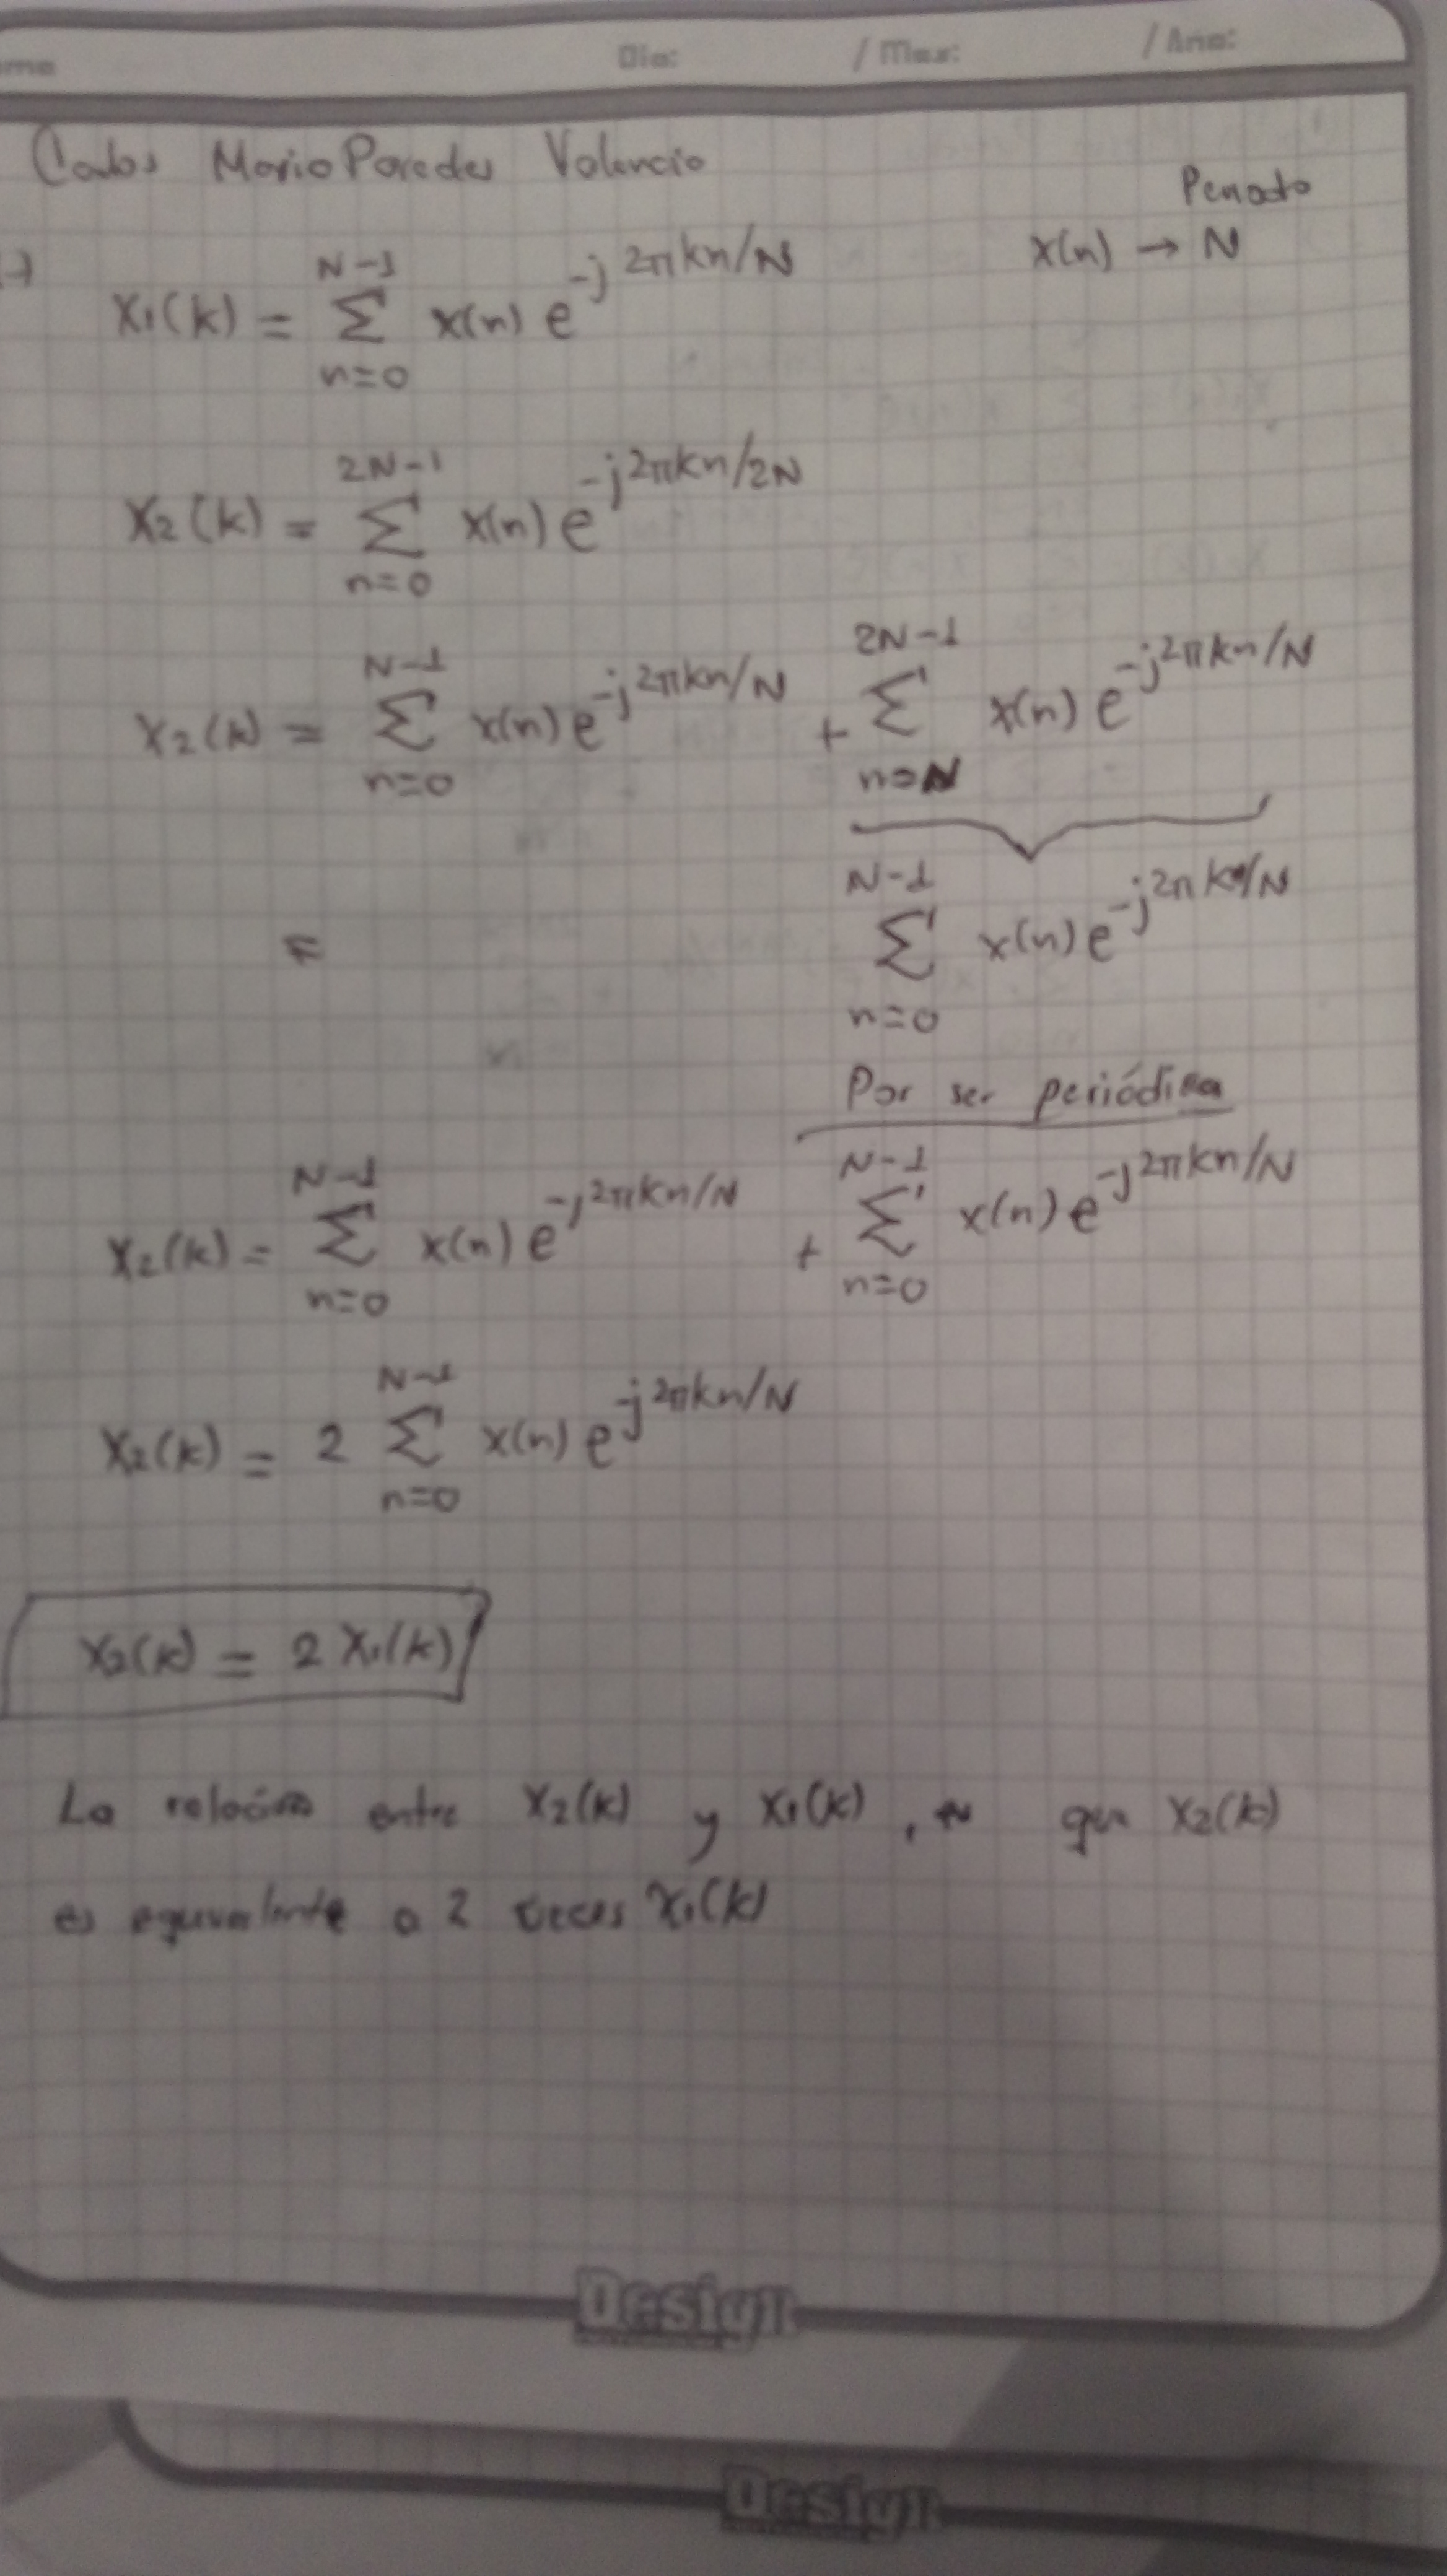 Dia: / Mes: / Año:
Carlos Mario Paredes Valencia
Periodo
x(n) → N
X₁(k) = Σ_{n=0}^{N-1} x(n) e^{-j2πkn/N}
X₂(k) = Σ_{n=0}^{2N-1} x(n) e^{-j2πkn/2N}
X₂(k) = Σ_{n=0}^{N-1} x(n) e^{-j2πkn/N} + Σ_{n=N}^{2N-1} x(n) e^{-j2πkn/N}
= Σ_{n=0}^{N-1} x(n) e^{-j2πkn/N}
Por ser periódica
X₂(k) = Σ_{n=0}^{N-1} x(n) e^{-j2πkn/N} + Σ_{n=0}^{N-1} x(n) e^{-j2πkn/N}
X₂(k) = 2 Σ_{n=0}^{N-1} x(n) e^{-j2πkn/N}
X₂(k) = 2 X₁(k)
La relación entre X₂(k) y X₁(k), es que X₂(k)
es equivalente a 2 veces X₁(k)
Design
Design